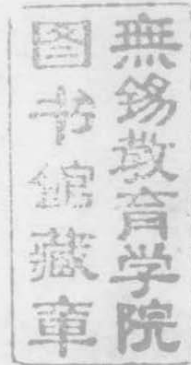 無錫教育学院
图书館藏章